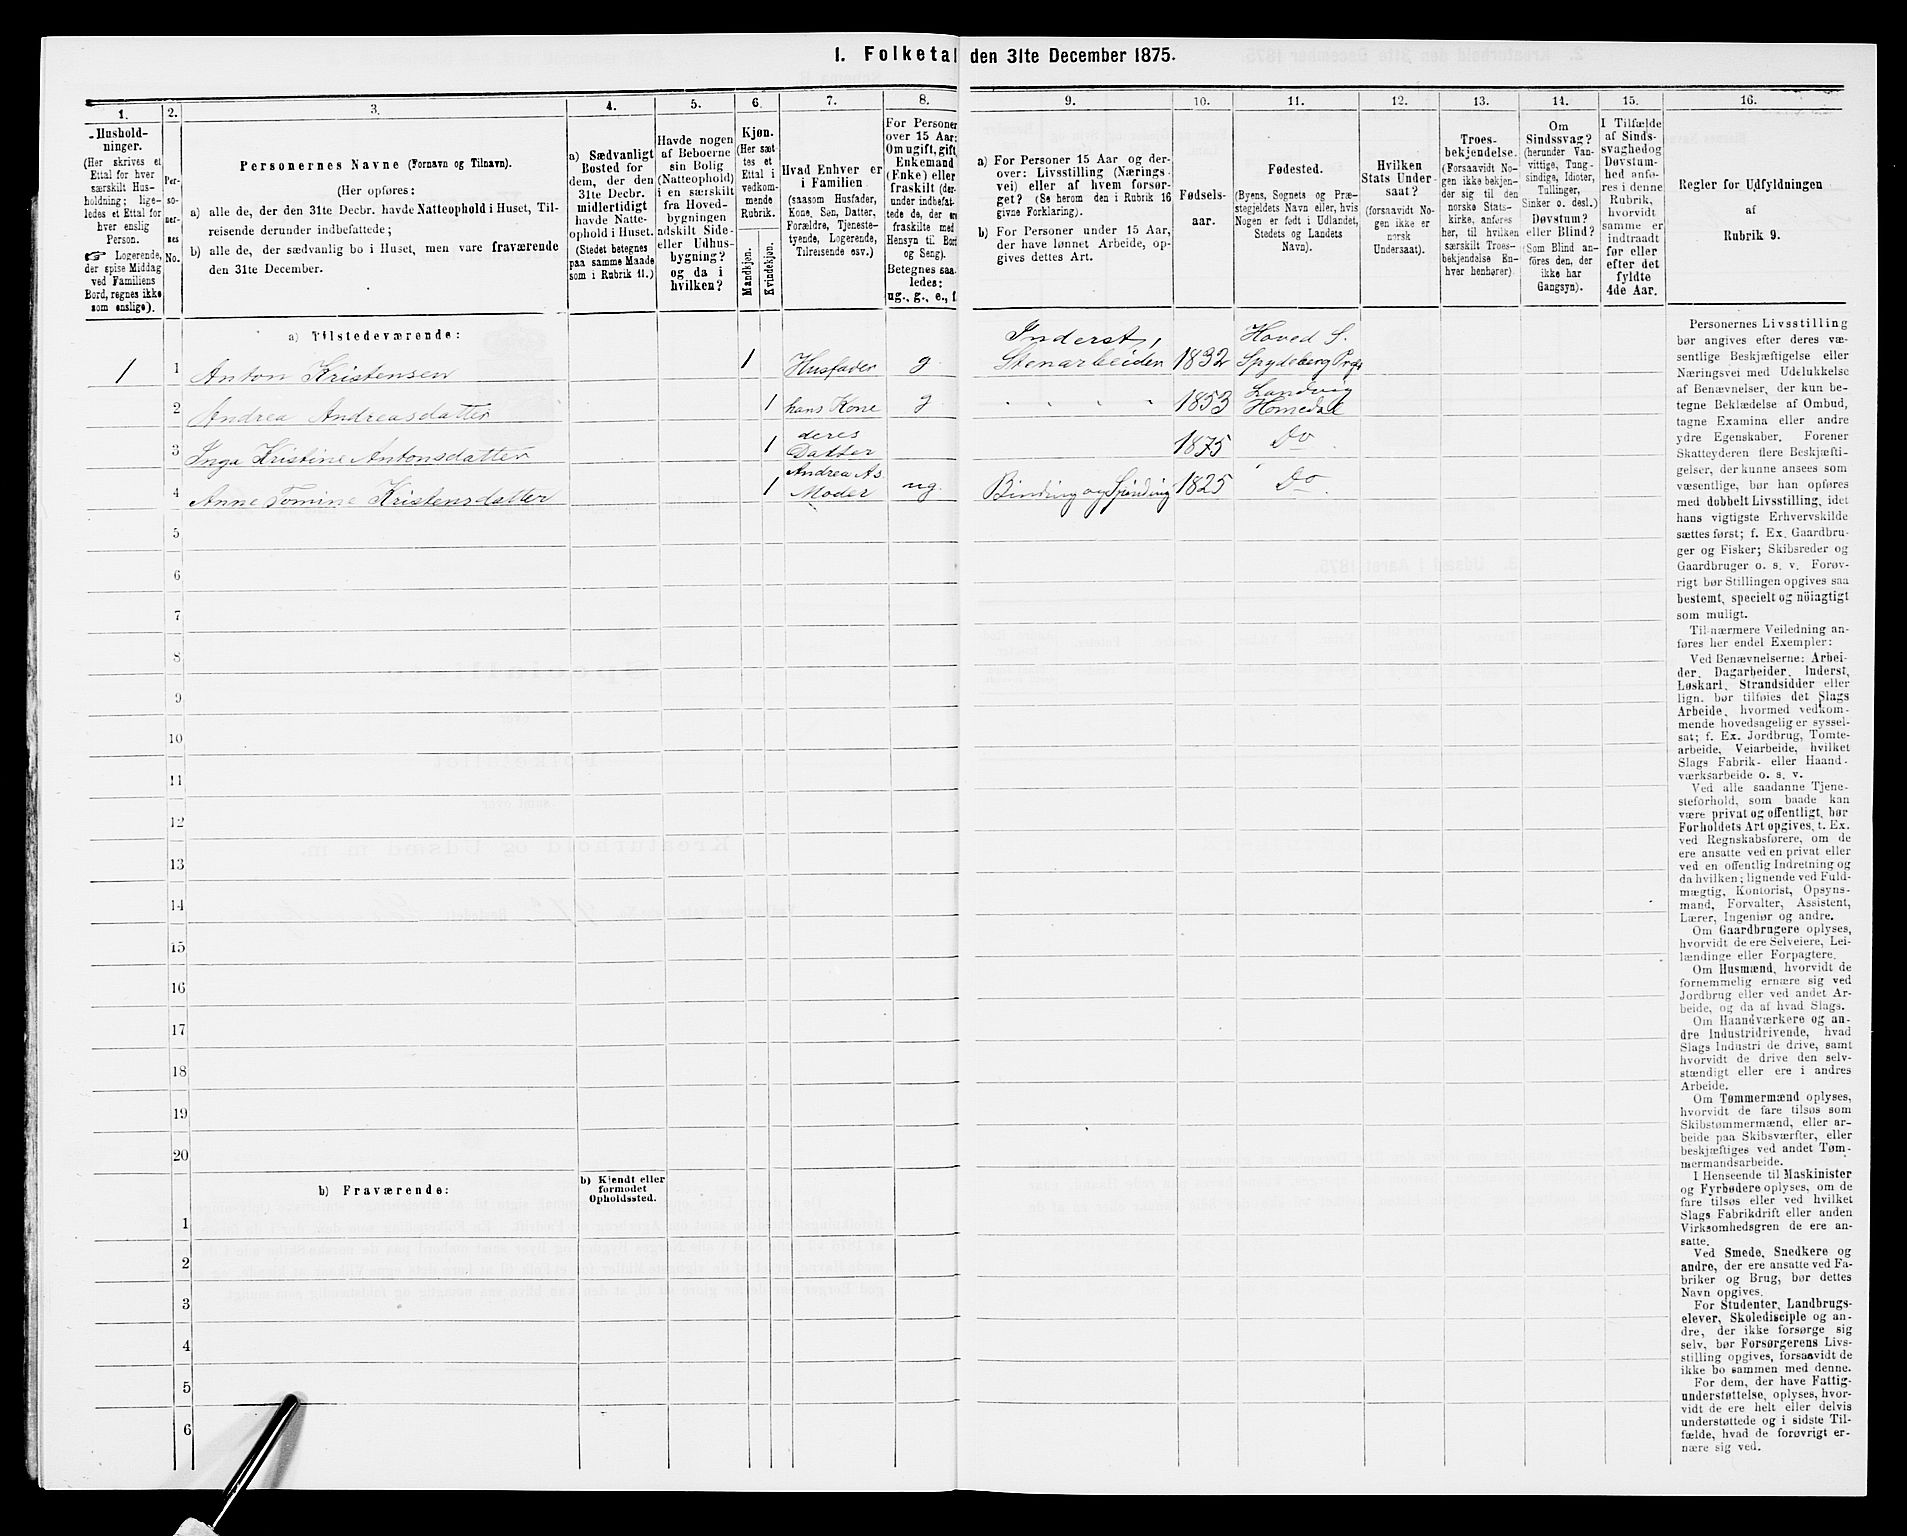 1. Folketal den 31te December 1875.
1.
Hushold-
ninger.
(Her skrives et
Ettal for hver
særskilt Hus-
holdning; lige-
ledes et Ettal for
hver enslig
Person.
☞ Logerende,
der spise Middag
ved Familiens
Bord, regnes ikke
som enslige).
2.
Per-
so-
ner-
nes
No.
3.
Personernes Navne (Fornavn og Tilnavn).
(Her opføres:
a) alle de, der den 31te Decbr. havde Natteophold i Huset, Til-
reisende derunder indbefattede;
b) alle de, der sædvanlig bo i Huset, men vare fraværende
den 31te December.
4.
a) Sædvanligt
Bosted for
dem, der den
31te Decbr.
midlertidigt
havde Natte-
ophold i Huset.
(Stedet betegnes
paa samme Maade
som i Rubrik 11.)
5.
Havde nogen
af Beboerne
sin Bolig
(Natteophold)
i en særskilt
fra Hoved-
bygningen
adskilt Side-
eller Udhus-
bygning?
og da i
hvilken?
6.
Kjøn.
(Her sæt-
tes et
Ettal i
vedkom-
mende
Rubrik.
Mandkjøn.
Kvindekjøn.
7.
Hvad Enhver er
i Familien
(saasom Husfader,
Kone, Søn, Datter,
Forældre, Tjeneste-
tyende, Logerende,
Tilreisende osv.)
8.
For Personer
over 15 Aar:
Om ugift, gift,
Enkemand
(Enke) eller
fraskilt (der-
under indbefat-
tede de, der ere
fraskilte med
Hensyn til Bord
og Seng).
Betegnes saa-
ledes:
ug., g., e., f.
9.
a) For Personer 15 Aar og der-
over: Livsstilling (Nærings-
vei) eller af hvem forsør-
get? (Se herom den i Rubrik 16
givne Forklaring).
b) For Personer under 15 Aar,
der have lønnet Arbeide, op-
gives dettes Art.
10.
Fødsels-
aar.
11.
Fødested.
(Byens, Sognets og Præ-
stegjeldets Navn eller, hvis
Nogen er født i Udlandet,
Stedets og Landets
Navn).
12.
Hvilken
Stats Under-
saat?
(forsaavidt No-
gen ikke er
norsk
Undersaat).
13.
Troes-
bekjendelse.
(Forsaavidt No-
gen ikke bekjen-
der sig til den
norske Stats-
kirke, anføres
her, til hvilken
særskilt Troes-
bekjendelse En-
hver henhører).
14.
Om
Sindssvag?
(herunder Van-
vittige, Tung-
sindige, Idioter,
Tullinger,
Sinker o. desl.)
Døvstum?
eller Blind?
(Som Blind an-
føres den, der
ikke har
Gangsyn).
15.
I Tilfælde
af Sinds-
svaghed og
Døvstum-
hed anfø-
res i denne
Rubrik,
hvorvidt
samme er
indtraadt
før eller
efter det
fyldte
4de Aar.
16.
Regler for Udfyldningen
af
Rubrik 9.
a) Tilstedeværende:
1 1 Anton Kristensen 1 Husfader g Inderst, Stenarbeider 1832 Hoved S. Spydeberg Præ
2 Andrea Andreasdatter 1 hans Kone g " " " " 1853 Landvig Homedal
3 Inga Kristine Antonsdatter 1 deres Datter 1875 Do
4 Anne Tomine Kristensdatter 1 Andrea As. Moder ug. Binding og Spinding 1825 Do
5
6
7
8
9
10
11
12
13
14
15
16
17
18
19
20
b) Fraværende:
b) Kjendt eller
formodet
Opholdssted.
1
2
3
4
5
6
Personernes Livsstilling
bør angives efter deres væ-
sentlige Beskjæftigelse eller
Næringsvei med Udelukkelse
af Benævnelser, der kun be-
tegne Beklædelse af Ombud,
tagne Examina eller andre
ydre Egenskaber. Forener
Skatteyderen flere Beskjæfti-
gelser, der kunne ansees som
væsentlige, bør han opføres
med dobbelt Livsstilling, idet
hans vigtigste Erhvervskilde
sættes først; f. Ex. Gaardbru-
ger og Fisker; Skibsreder og
Gaardbruger o. s. v. Forøv-
rigt bør Stillingen opgives saa
bestemt, specielt og nöiagtigt
som muligt.
Til nærmere Veiledning an-
føres her endel Exempler:
Ved Benævnelserne: Arbei-
der, Dagarbeider, Inderst,
Løskarl, Strandsidder eller
lign. bør tilføies det Slags
Arbeide, hvormed vedkom-
mende hovedsagelig er syssel-
sat; f. Ex. Jordbrug, Tomte-
arbeide, Veiarbeide, hvilket
Slags Fabrik- eller Haand-
værksarbeide o. s. v.
Ved alle saadanne Tjene-
steforhold, som baade kan
være privat og offentligt, bør
Forholdets Art opgives, t. Ex.
ved Regnskabsførere, om de
ere ansatte ved en privat eller
ved en offentlig Indretning og
da hvilken; lignende ved Fuld-
mægtig, Kontorist, Opsyns-
mand, Forvalter, Assistent,
Lærer, Ingeniør og andre.
Om Gaardbrugere oplyses,
hvorvidt de ere Selveiere, Lei-
lændinge eller Forpagtere.
Om Husmænd, hvorvidt de
fornemmelig ernære sig ved
Jordbrug eller ved andet Ar-
beide, og da af hvad Slags.
Om Haandværkere og an-
dre Industridrivende, hvad
Slags Industri de drive, samt
hvorvidt de drive den selv-
stændigt eller ere i andres
Arbeide.
Om Tømmermænd oplyses,
hvorvidt de fare tilsøs som
Skibstømmermænd, eller ar-
beide paa Skibsværfter, eller
beskjæftiges ved andet Tøm-
mermandsarbeide.
I Henseende til Maskinister
og Fyrbødere oplyses, om de
fare tilsøs eller ved hvilket
Slags Fabrikdrift eller anden
Virksomhedsgren de ere an-
satte.
Ved Smede, Snedkere og
andre, der ere ansatte ved Fa-
briker og Brug, bør dettes
Navn opgives.
For Studenter, Landbrugs-
elever, Skoledisciple og an-
dre, der ikke forsørge sig
selv, bør Forsørgerens Livs-
stilling opgives, forsaavidt de
ikke bo sammen med denne.
For dem, der have Fattig-
understøttelse, oplyses, hvor-
vidt de ere helt eller delvis
understøttede og i sidste Til-
fælde, hvad de forøvrigt er-
nære sig ved.